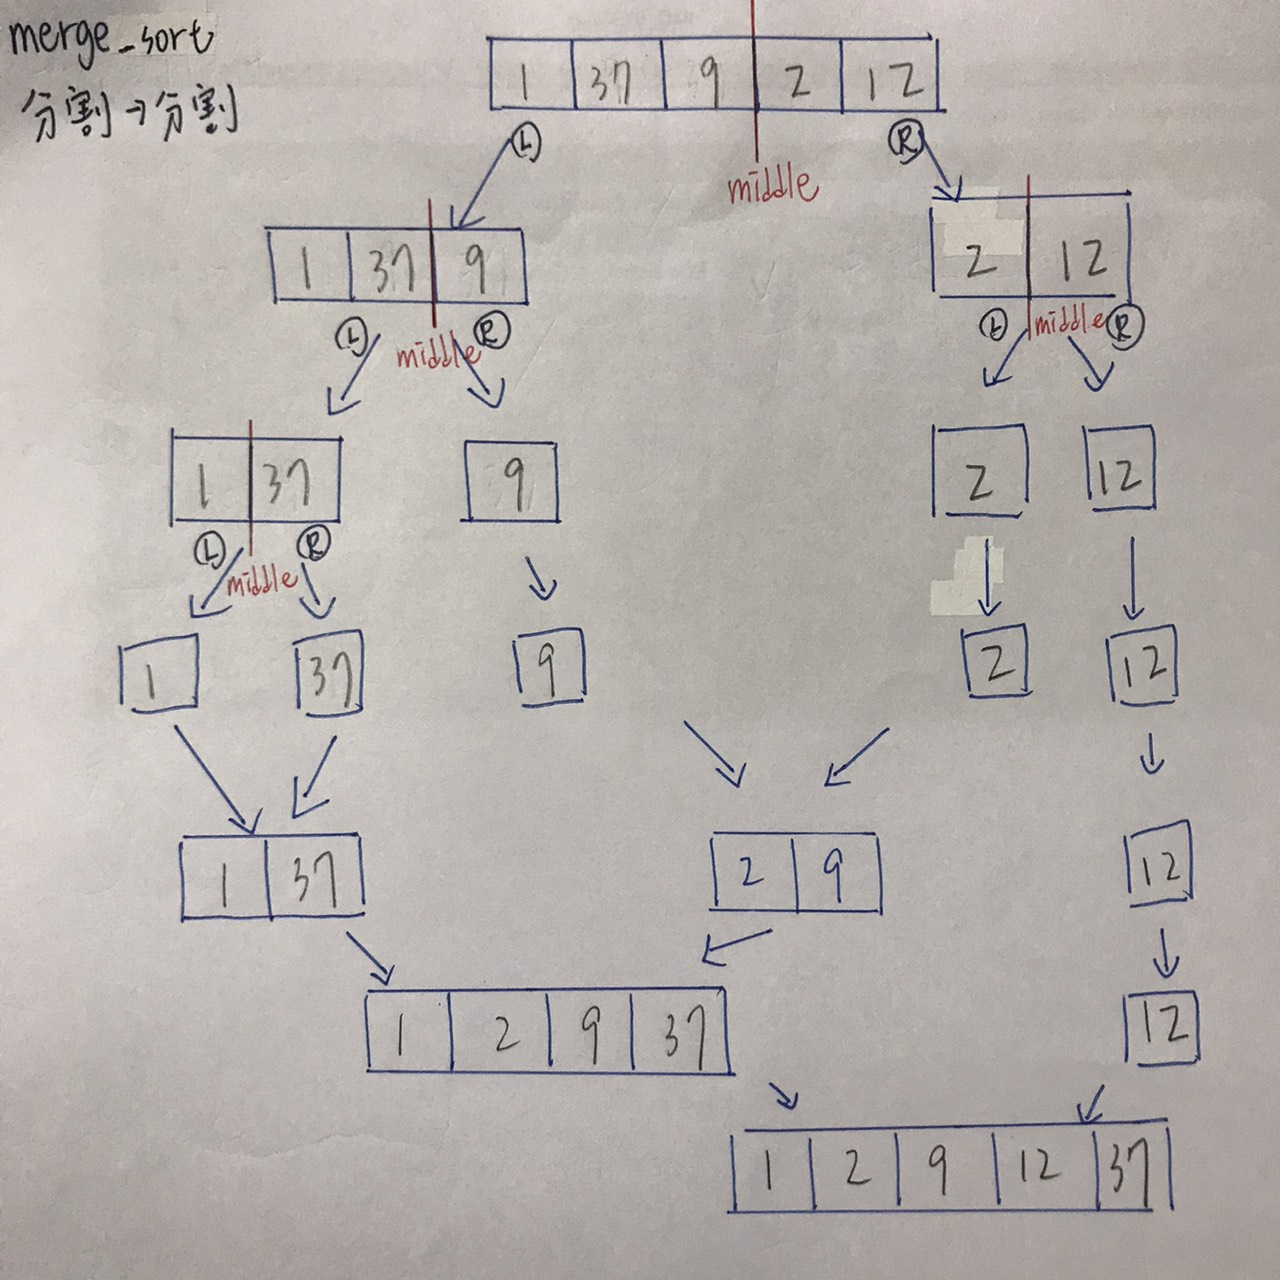 merge_sort
分割→分割
1 37 9 2 12
L R
middle
1 37 9
2 12
L middle R
L middle R
1 37
9
2
12
L middle R
1
37
9
2
12
1 37
2 9
12
1 2 9 37
12
1 2 9 12 37